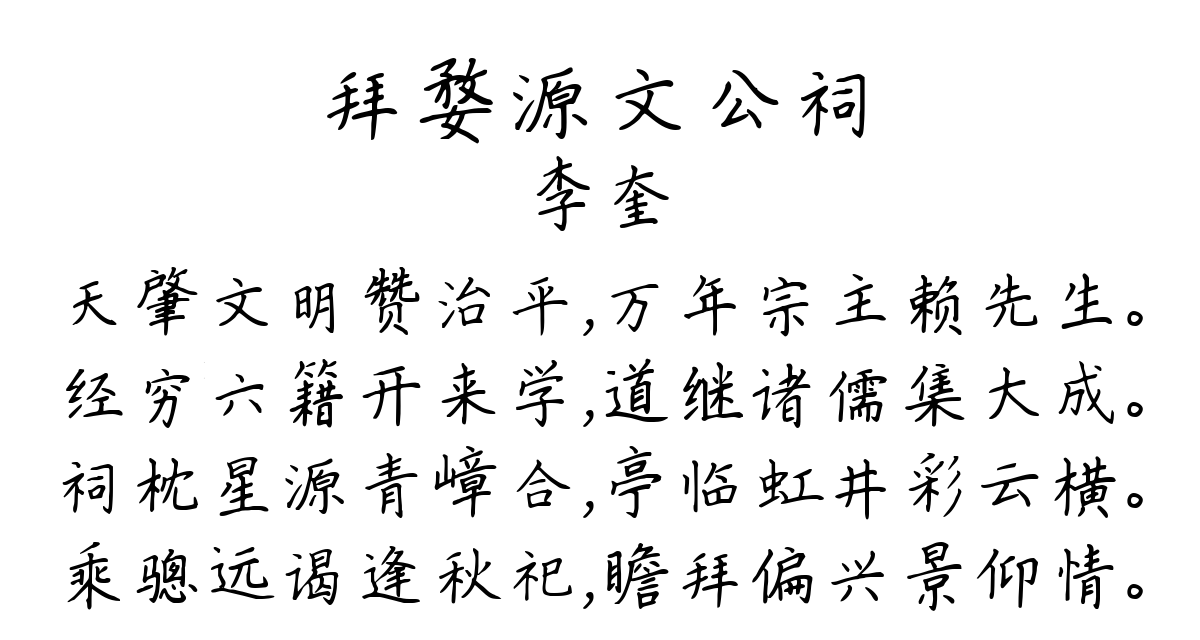 拜婺源文公祠
李奎
天肇文明赞治平,万年宗主赖先生。
经穷六籍开来学,道继诸儒集大成。
祠枕星源青嶂合,亭临虹井彩云横。
乘骢远谒逢秋祀,瞻拜偏兴景仰情。